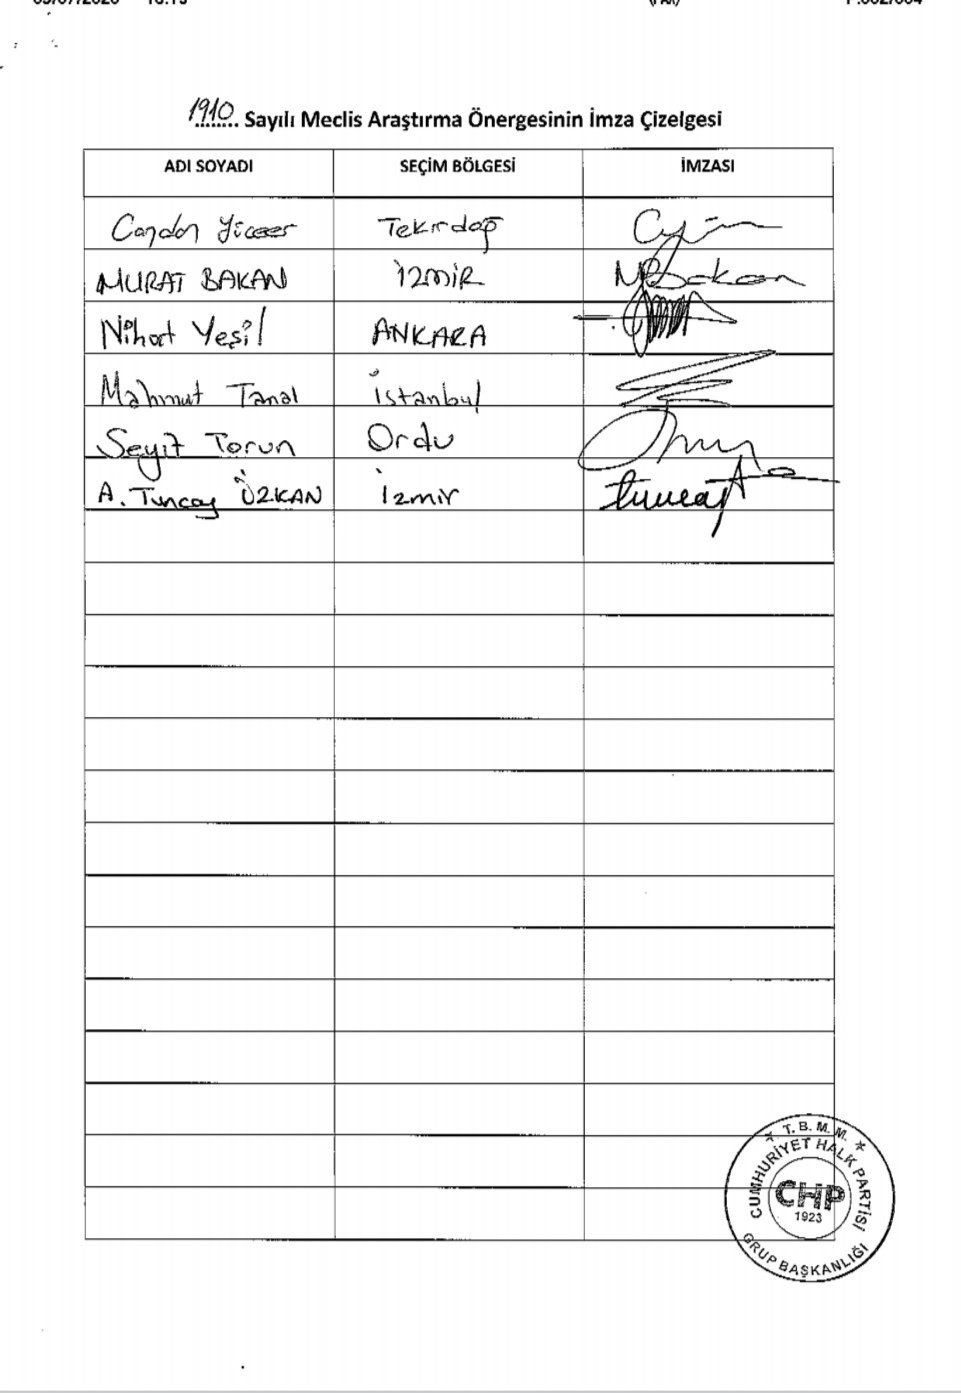 1910 Sayılı Meclis Araştırma Önergesinin İmza Çizelgesi
ADI SOYADI SEÇİM BÖLGESİ İMZASI
Candan Yüceer Tekirdağ
MURAT BAKAN İZMİR MBakan
Nihat Yeşil ANKARA
Mahmut Tanal İstanbul
Seyit Torun Ordu
A. Tuncay ÖZKAN İzmir
T.B.M.M.
CUMHURİYET HALK PARTİSİ
CHP
1923
GRUP BAŞKANLIĞI